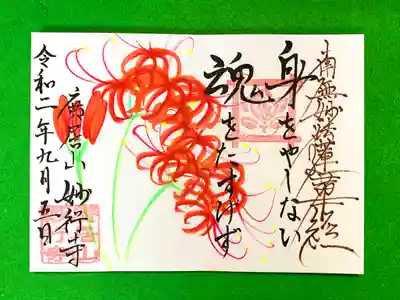 南無妙法蓮華経
身をやしない
魂をたすけず
廣告山 妙行寺
令和二年九月五日